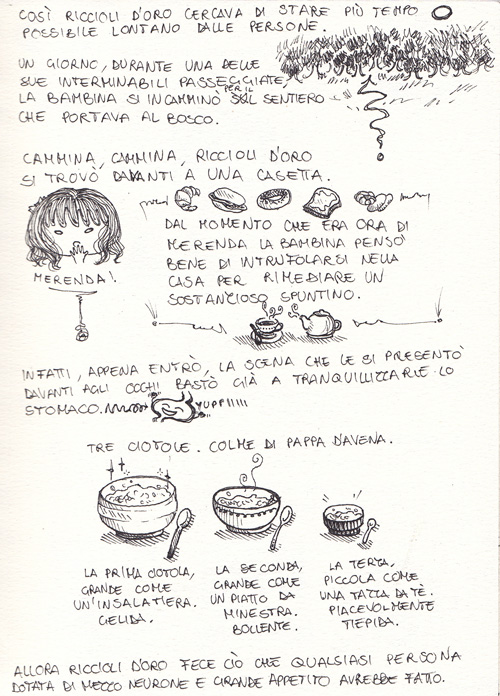 COSÌ RICCIOLI D'ORO CERCAVA DI STARE PIÙ TEMPO
POSSIBILE LONTANO DALLE PERSONE.
UN GIORNO, DURANTE UNA DELLE
SUE INTERMINABILI PASSEGGIATE,
LA BAMBINA SI INCAMMINÒ PER IL SENTIERO
CHE PORTAVA AL BOSCO.
CAMMINA, CAMMINA, RICCIOLI D'ORO
SI TROVÒ DAVANTI A UNA CASETTA.
MERENDA!
DAL MOMENTO CHE ERA ORA DI
MERENDA LA BAMBINA PENSÒ
BENE DI INTRUFOLARSI NELLA
CASA PER RIMEDIARE UN
SOSTANZIOSO SPUNTINO.
INFATTI, APPENA ENTRÒ, LA SCENA CHE LE SI PRESENTÒ
DAVANTI AGLI OCCHI BASTÒ GIÀ A TRANQUILLIZZARLE LO
STOMACO.
YUPPIIIII
TRE CIOTOLE. COLME DI PAPPA D'AVENA.
LA PRIMA CIOTOLA,
GRANDE COME
UN'INSALATIERA.
GELIDA.
LA SECONDA,
GRANDE COME
UN PIATTO DA
MINESTRA.
BOLLENTE.
LA TERZA,
PICCOLA COME
UNA TAZZA DA TÈ.
PIACEVOLMENTE
TIEPIDA.
ALLORA RICCIOLI D'ORO FECE CIÒ CHE QUALSIASI PERSONA
DOTATA DI MEZZO NEURONE E GRANDE APPETITO AVREBBE FATTO.